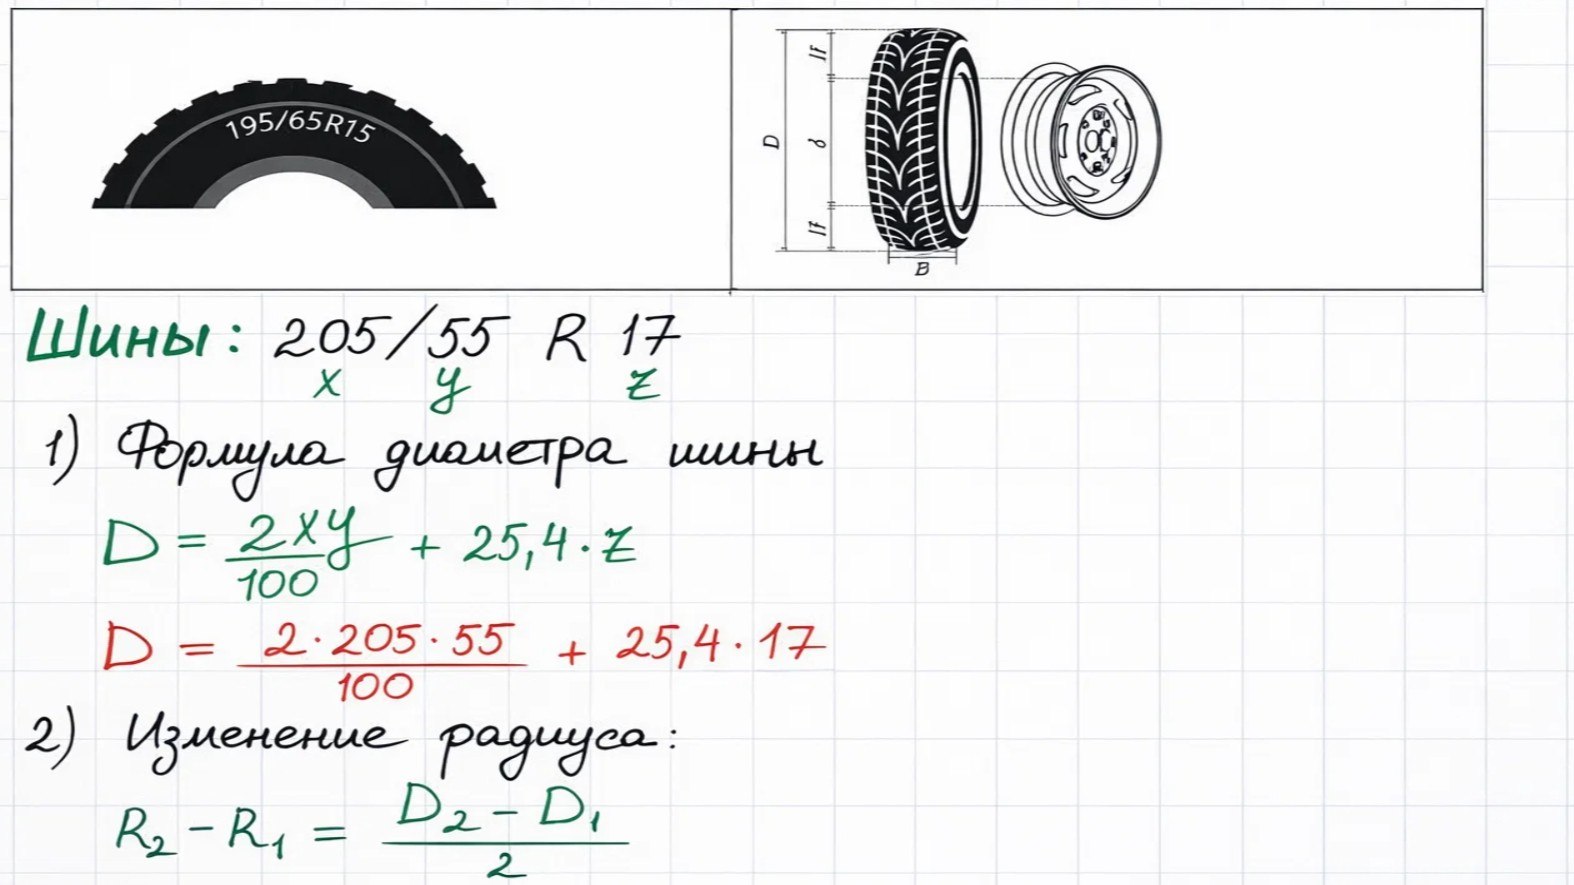 195/65R15
D
H
d
H
B
Шины: 205/55 R 17
x y z
1) Формула диаметра шины
D = 2xy/100 + 25,4·z
D = 2·205·55/100 + 25,4·17
2) Изменение радиуса:
R₂ - R₁ = D₂ - D₁/2